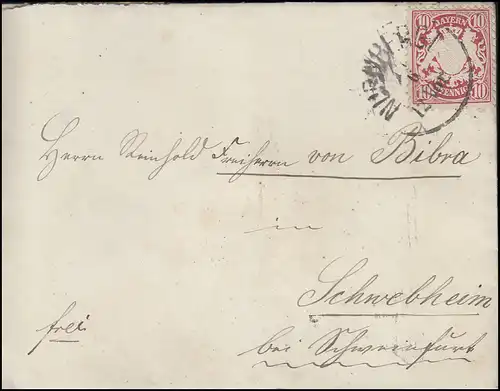 10 BAYERN 10
10 PFENNIG 10
NUERNBERG
Herrn Reinhold Freiherrn von Bibra
in
Schwebheim
frei
bei Schweinfurt